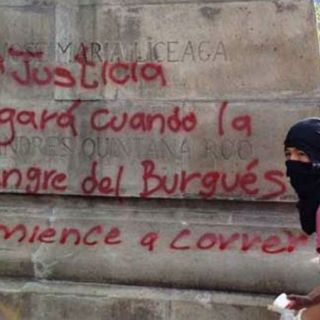 JOSE MARIA LICEAGA
a Justicia
gará cuando la
ANDRES QUINTANA ROO
angre del Burgués
mience a correr